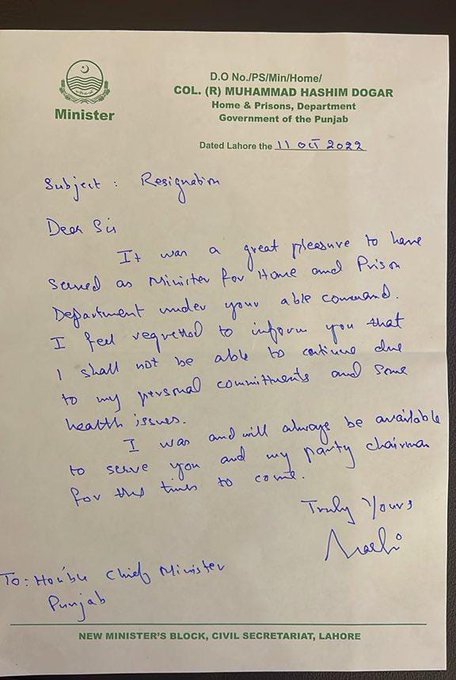 Minister
D.O No./PS/Min/Home/
COL. (R) MUHAMMAD HASHIM DOGAR
Home & Prisons, Department
Government of the Punjab
Dated Lahore the 11 OCT 2022
Subject : Resignation
Dear Sir
It was a great pleasure to have
served as Minister for Home and Prison
Department under your able command.
I feel regretted to inform you that
I shall not be able to continue due
to my personal committments and some
health issues.
I was and will always be available
to serve you and my party chairman
for the times to come.
Truly Yours
To: Hon'ble Chief Minister
Punjab
NEW MINISTER'S BLOCK, CIVIL SECRETARIAT, LAHORE